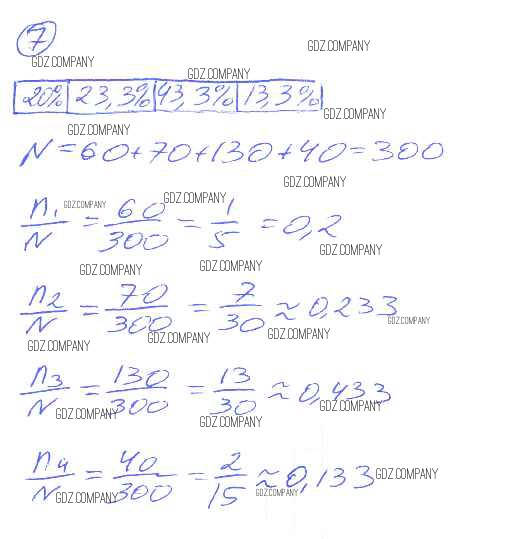 7
GDZ.COMPANY
GDZ.COMPANY
GDZ.COMPANY
20% 23,3% 43,3% 13,3%
GDZ.COMPANY
GDZ.COMPANY
N = 60 + 70 + 130 + 40 = 300
GDZ.COMPANY
GDZ.COMPANY
GDZ.COMPANY
n₁/N = 60/300 = 1/5 = 0,2
GDZ.COMPANY
GDZ.COMPANY
GDZ.COMPANY
n₂/N = 70/300 = 7/30 ≈ 0,233
GDZ.COMPANY
GDZ.COMPANY
GDZ.COMPANY
GDZ.COMPANY
n₃/N = 130/300 = 13/30 ≈ 0,433
GDZ.COMPANY
GDZ.COMPANY
GDZ.COMPANY
n₄/N = 40/300 = 2/15 ≈ 0,133
GDZ.COMPANY
GDZ.COMPANY
GDZ.COMPANY